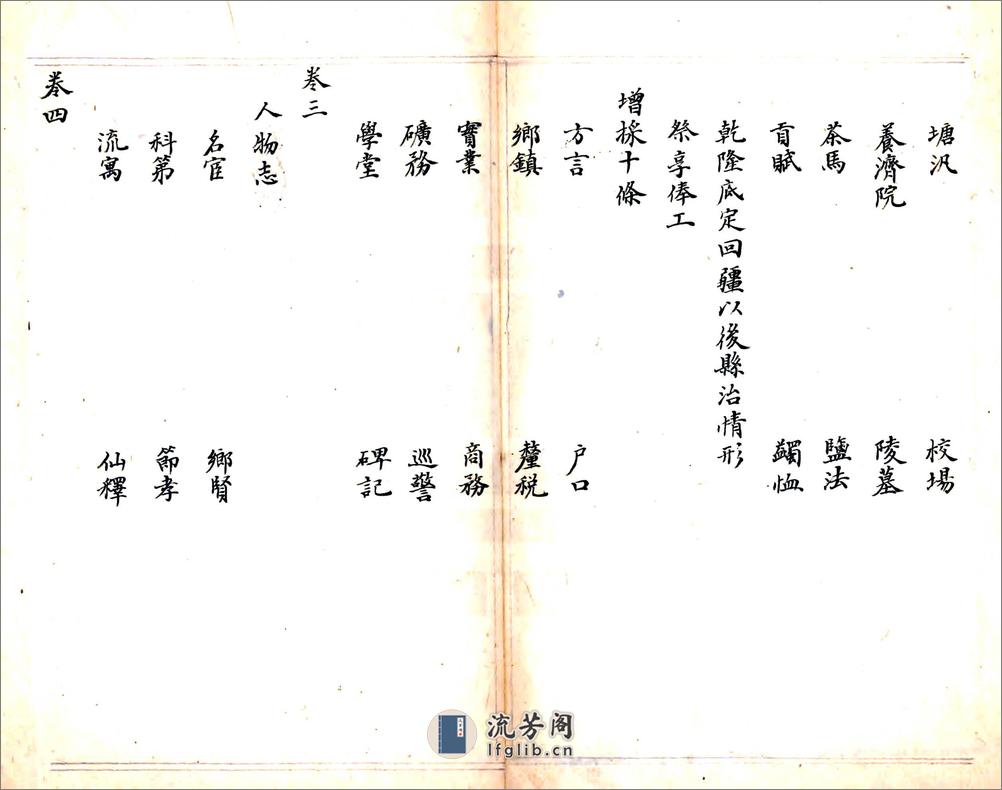 塘汛　校場
養濟院　陵墓
茶馬　鹽法
貢賦　蠲恤
乾隆底定回疆以後縣治情形
祭享俸工
增採十條
方言　户口
鄉鎮　釐税
實業　商務
礦務　巡警
學堂　碑記
卷三
人物志
名宦　鄉賢
科第　節孝
流寓　仙釋
卷四
流芳阁
lfglib.cn